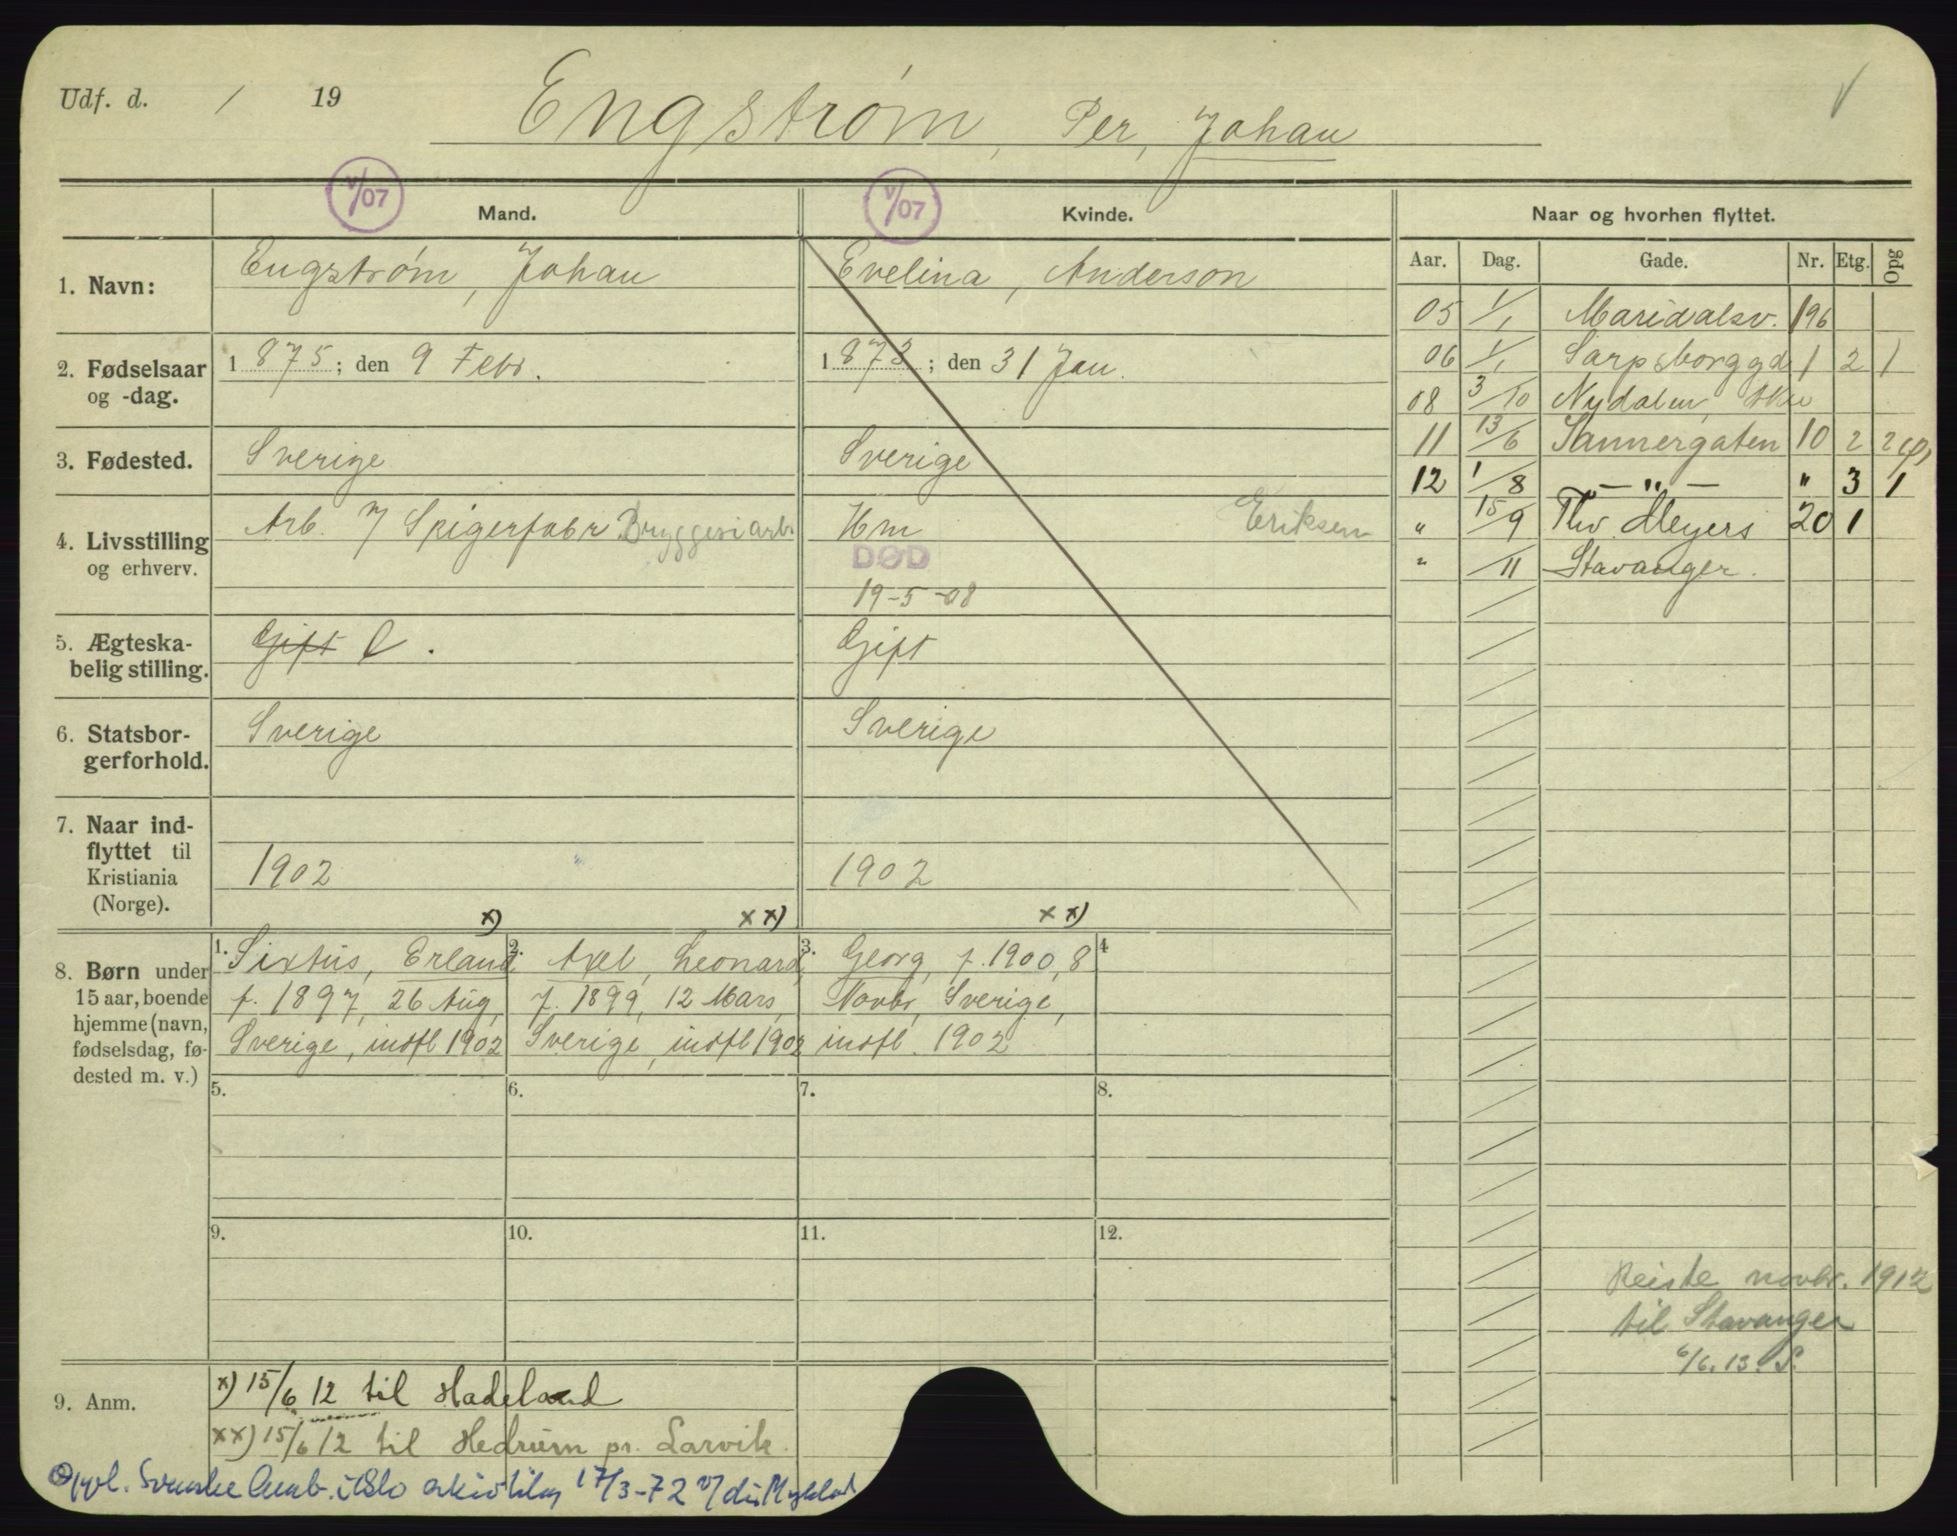 Udf. d. / 19
Engstrøm, Per, Johan
V/07 V/07
Mand. Kvinde. Naar og hvorhen flyttet.
Aar. Dag. Gade. Nr. Etg. Opg
1. Navn: Engstrøm, Johan Evelina, Anderson
2. Fødselsaar og -dag. 1 875; den 9 Febr. 1 873; den 31 Jan.
3. Fødested. Sverige Sverige
4. Livsstilling og erhverv. Arb. Spigerfabr. Bryggeriarb. Hm Eriksen
DØD
19-5-08
5. Ægteskabelig stilling. Gift Gift
6. Statsborgerforhold. Sverige Sverige
7. Naar indflyttet til Kristiania (Norge). 1902 1902
x) xx) xx)
05 1/1 Maridalsv. 196
06 1/1 Sarpsborggd 1 2 1
08 3/10 Nydalen
11 13/6 Sannergaten 10 2 2
12 1/8 — " — " 3 1
" 15/9 Thv Meyers 20 1
" /11 Stavanger.
8. Børn under 15 aar, boende hjemme (navn, fødselsdag, fødested m. v.)
1. Sixtus, Erland, f. 1897, 26 Aug, Sverige, indfl 1902
2. Axel, Leonard, f. 1899, 12 Mars, Sverige, indfl 1902
3. Georg, f. 1900, 8 Novbr, Sverige, indfl. 1902
4
5. 6. 7. 8.
9. 10. 11. 12.
Reiste novbr. 1912
til Stavanger
6/6.13. S.
9. Anm. x) 15/6 12 til Hadeland
xx) 15/6 12 til Hedrum pr. Larvik.
Opl. Svenske Amb. i Oslo 17/3-72 v/